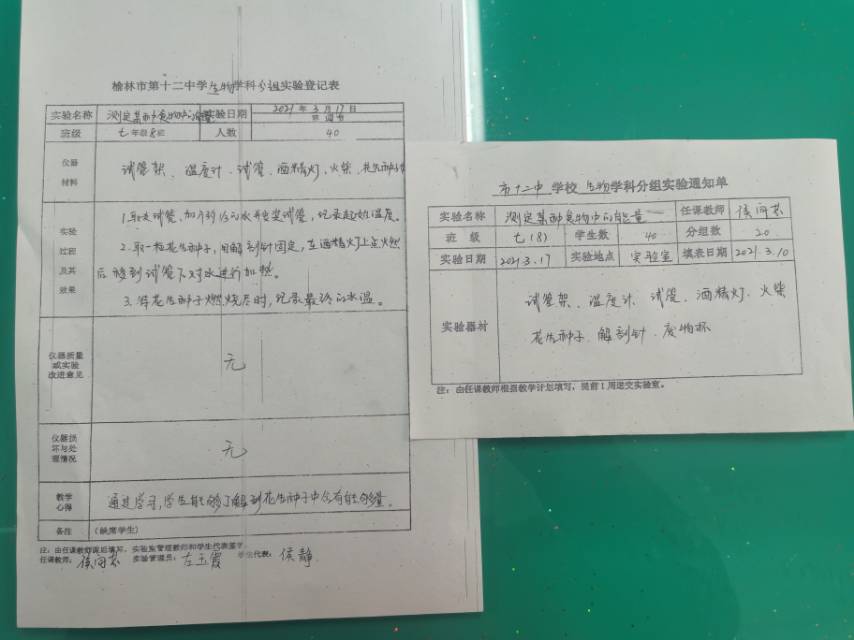 榆林市第十二中学生物学科分组实验登记表
实验名称 测定某种食物中的能量 实验日期 2021年3月17日
班级 七年级8班 人数 40
仪器材料 试管架、温度计、试管、酒精灯、火柴、花生种子
实验过程及其效果
1.取支试管,加个 冷水并安装试管,记录起始温度。
2.取一粒花生种子,用解剖针固定,在酒精灯上点燃
后移到试管下对水进行加热。
3.待花生种子燃烧尽时,记录最终的水温。
仪器质量或实验改进意见 无
仪器损坏与处理情况 无
教学心得 通过学习,学生能够了解到花生种子中含有能量。
备注 (缺席学生)
注:由任课教师课后填写,实验室管理教师和学生代表签字
任课教师: 实验管理员:左玉霞 学生代表:侯静
市十二中 学校 生物学科分组实验通知单
实验名称 测定某种食物中的能量 任课教师
班 级 七(8) 学生数 40 分组数 20
实验日期 2021.3.17 实验地点 实验室 填表日期 2021.3.10
实验器材 试管架、温度计、试管、酒精灯、火柴
花生种子、解剖针、废物杯
注:由任课教师根据教学计划填写,提前1周送交实验室。